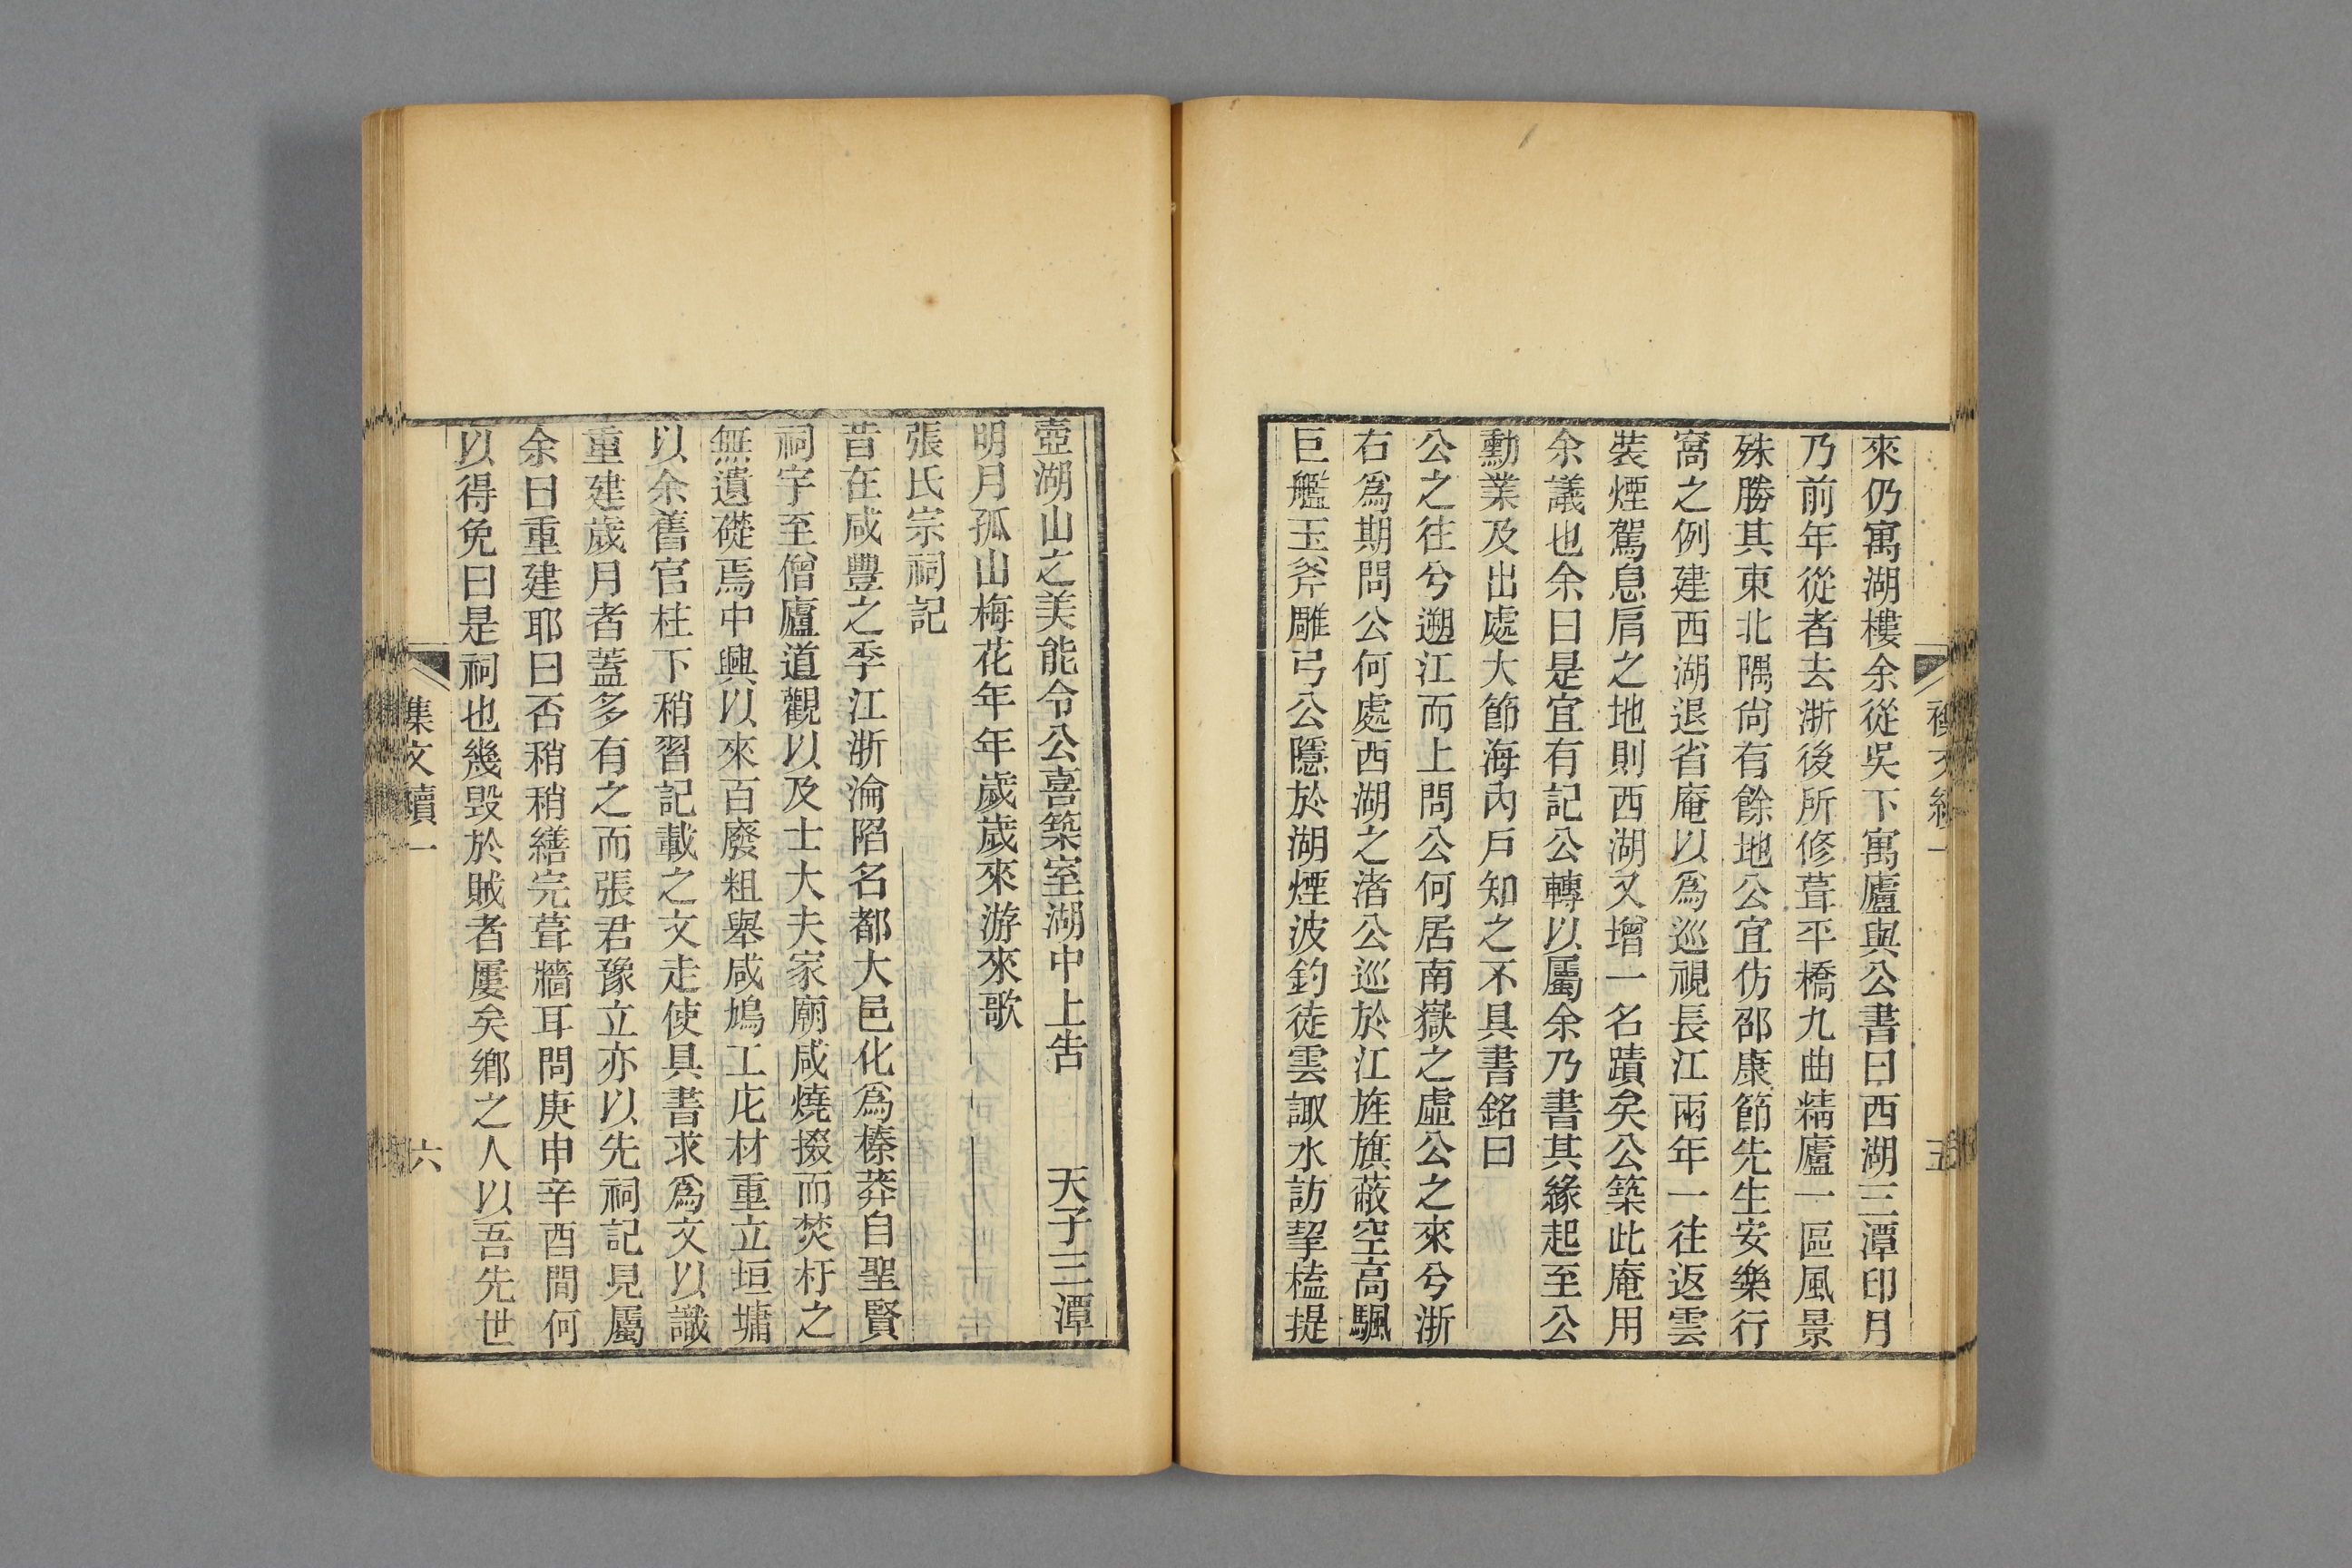 來仍寓湖樓余從吳下寓廬與公書曰西湖三潭印月
乃前年從者去浙後所修葺平橋九曲精廬一區風景
殊勝其東北隅尙有餘地公宜仿邵康節先生安樂行
窩之例建西湖退省庵以爲巡視長江兩年一往返雲
裝煙駕息肩之地則西湖又增一名蹟矣公築此庵用
余議也余曰是宜有記公轉以屬余乃書其緣起至公
勳業及出處大節海內戶知之不具書銘曰
公之往兮遡江而上問公何居南嶽之虛公之來兮浙
右爲期問公何處西湖之渚公巡於江旌旗蔽空高颿
巨艦玉斧雕弓公隱於湖煙波釣徒雲諏水訪挈榼提
壺湖山之美能令公喜築室湖中上告 天子三潭
明月孤山梅花年年歲歲來游來歌
張氏宗祠記
昔在咸豐之季江浙淪陷名都大邑化爲榛莽自聖賢
祠宇至僧廬道觀以及士大夫家廟咸燒掇而焚杅之
無遺礎焉中興以來百廢粗舉咸鳩工庀材重立垣墉
以余舊官柱下稍習記載之文走使具書求爲文以識
重建歲月者蓋多有之而張君豫立亦以先祠記見屬
余曰重建耶曰否稍稍繕完葺牆耳問庚申辛酉間何
以得免曰是祠也幾毀於賊者屢矣鄉之人以吾先世
集文續一
六